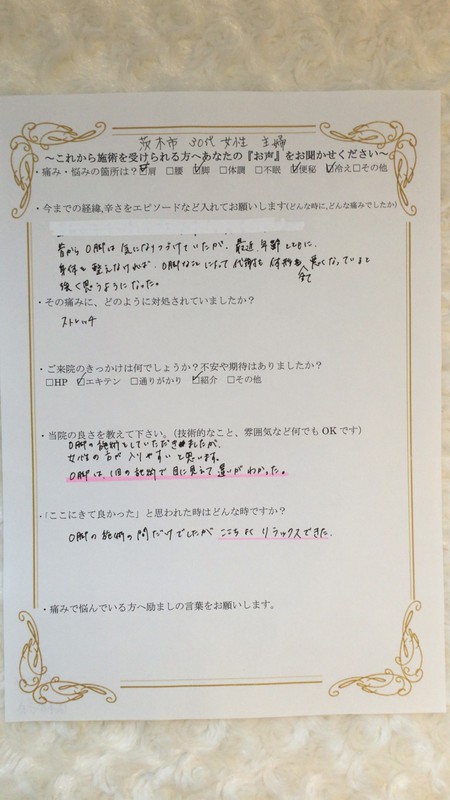 茨木市 30代 女性 主婦
～これから施術を受けられる方へあなたの『お声』をお聞かせください～
・痛み・悩みの箇所は？☑肩 □腰 ☑脚 □体調 □不眠 ☑便秘 ☑冷え□その他
・今までの経緯,辛さをエピソードなど入れてお願いします(どんな時に,どんな痛みでしたか)
昔から O脚は気になりつづけていたが、最近 年齢とともに、
身体を整えなければ、O脚なことによって代謝も 体料も 全て 悪くなっていると
強く思うようになった。
・その痛みに、どのように対処されていましたか？
ストレッチ
・ご来院のきっかけは何でしょうか？不安や期待はありましたか？
□HP ☑エキテン □通りがかり ☑紹介 □その他
・当院の良さを教えて下さい。（技術的なこと、雰囲気など何でも OK です）
O脚の施術をしていただきましたが、
女性の方が入りやすいと思います。
O脚は、1回の施術で目に見えて違いがわかった。
・「ここにきて良かった」と思われた時はどんな時ですか？
O脚の施術の間だけでしたが ここちよく リラックスできた.
・痛みで悩んでいる方へ励ましの言葉をお願いします。